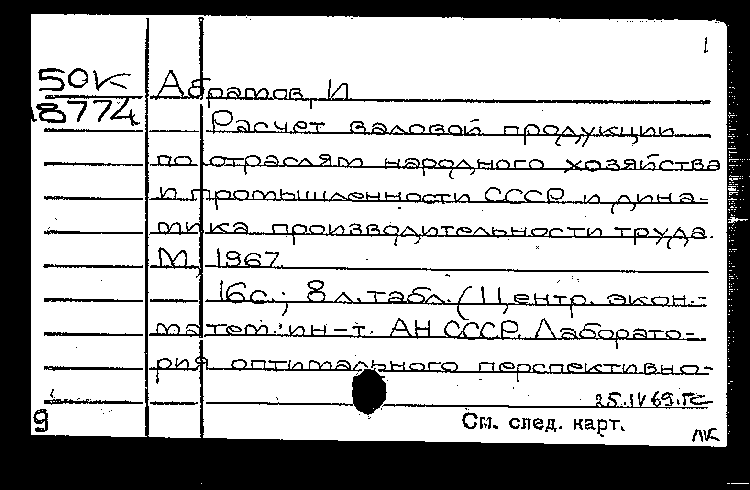 1
50К Абрамов, И
18774
Расчет валовой продукции
по отраслям народного хозяйства
и промышленности СССР и дина-
мика производительности труда.
М, 1967.
16с.; 8 л. табл. (Центр. экон.-
матем. ин-т. АН СССР. Лаборато-
рия оптимального перспективно-
25.IV 69.
См. след. карт.
9